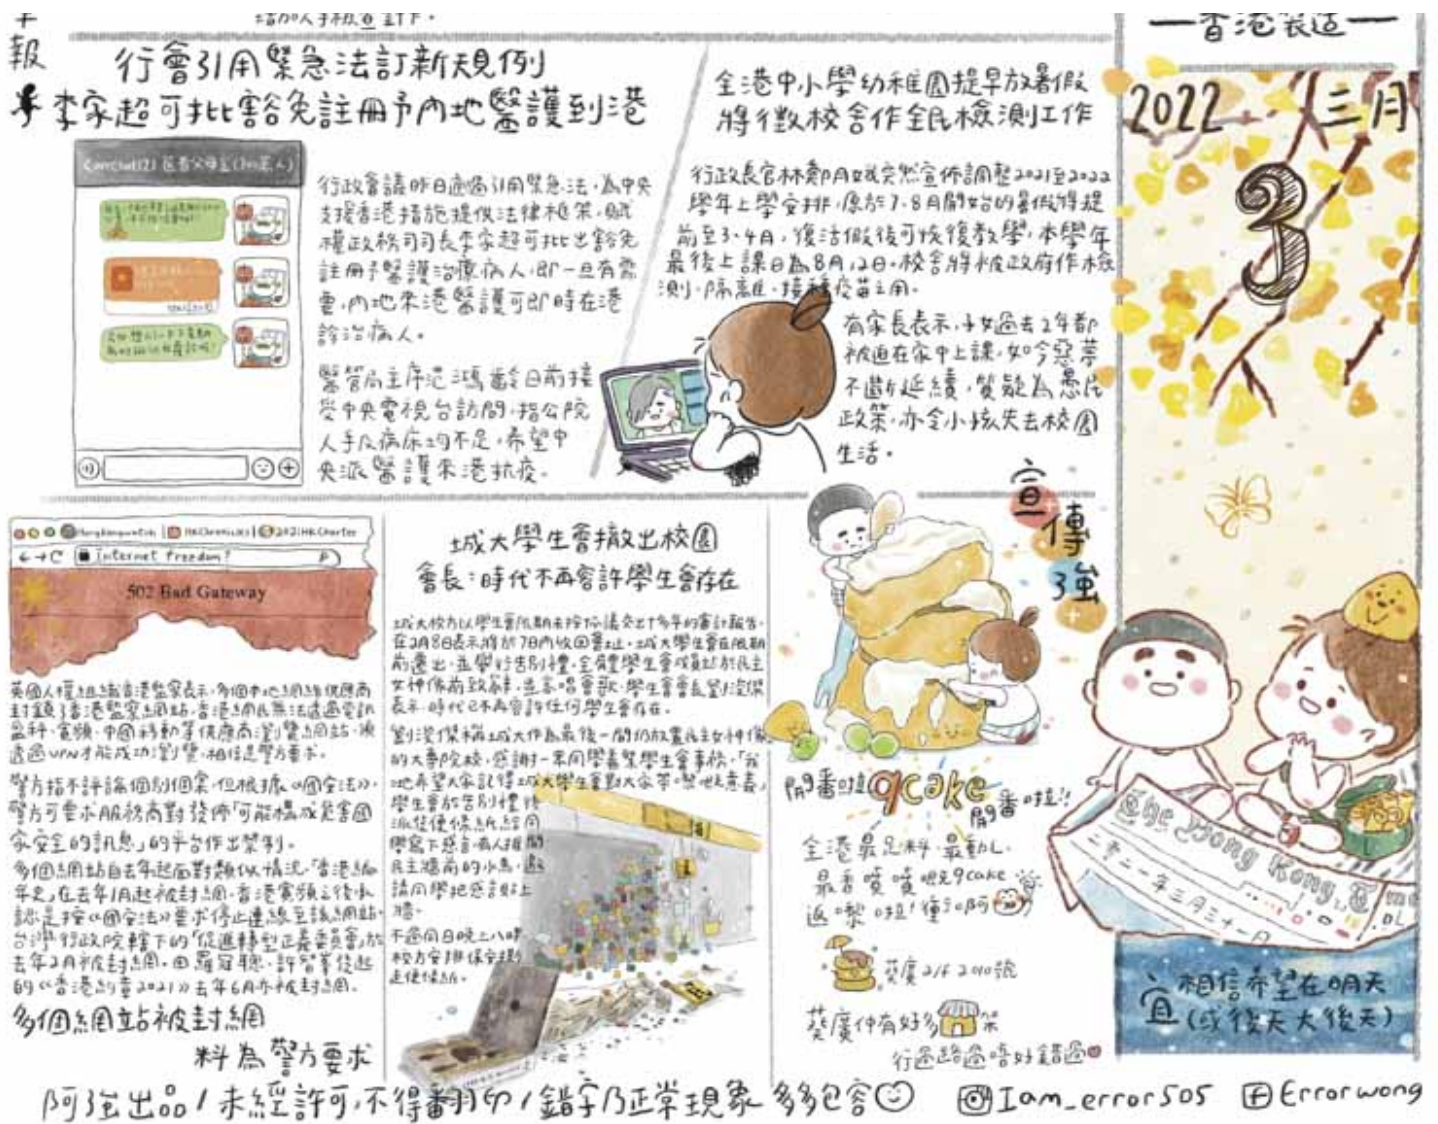 報
增加人手檢宣
行會引用緊急法訂新規例
李家超可批豁免註冊予內地醫護到港
行政會議昨日通過引用緊急法,為中央
支援香港措施提供法律框架,賦
權政務司司長李家超可批出豁免
註冊予醫護治療病人,即一旦有需
要,內地來港醫護可即時在港
診治病人。
醫管局主席范鴻齡日前接
受中央電視台訪問,指公院
人手及病床均不足,希望中
央派醫護來港抗疫。
全港中小學幼稚園提早放暑假
將徵校舍作全民檢測工作
行政長官林鄭月娥突然宣佈調整2021至2022
學年上學安排,原於7、8月開始的暑假將提
前至3、4月,復活假後可恢復教學,本學年
最後上課日為8月12日,校舍將被政府作檢
測、隔離、接種疫苗之用。
有家長表示,子女過去2年都
被迫在家中上課,如今惡夢
不斷延續,質疑為愚民
政策,亦令小孩失去校園
生活。
Hongkongwatch HKChronicles 2021HKCharter
Internet freedom?
502 Bad Gateway
英國人權組織香港監察表示,多個本地網絡供應商
封鎖了香港監察網站,香港網民無法透過電訊
盈科、寬頻、中國移動等供應商瀏覽網站,須
透過VPN才能成功瀏覽,相信是警方要求。
警方指不評論個別個案,但根據《國安法》,
警方可要求服務商對發佈「可能構成危害國
家安全的訊息」的平台作出禁制。
多個網站自去年起面對類似情況,「香港編
年史」在去年1月起被封網,香港寬頻之後承
認是按《國安法》要求停止連線至該網站,
台灣行政院轄下的「促進轉型正義委員會」於
去年2月被封網,由羅冠聰、許智峯發起
的《香港約章2021》去年6月亦被封網。
多個網站被封網
料為警方要求
城大學生會撤出校園
會長:時代不再容許學生會存在
城大校方以學生會限期未按協議交出十多年的審計報告,
在2月8日表示將於7日內收回會址,城大學生會在限期
前遷出,並舉行告別禮,全體學生會成員站於民主
女神像前致辭,並高唱會歌,學生會會長劉浚傑
表示,時代已不再容許任何學生會存在。
劉浚傑稱城大作為最後一間仍放置民主女神像
的大專院校,感謝一眾同學義撐學生會事務,「我
地希望大家記得城大學生會對大家帶嚟嘅意義」
學生會於告別禮後
派發便條紙給同
學寫下感言,兩人推開
民主牆前的小馬,邀
請同學把感言貼上
牆。
不過同日晚上八時
校方安排保安撕
走便條紙。
宣
傳
強
開番啦 9cake 開番啦!!
全港最足料,最動L,
最香噴噴嘅9cake
返嚟啦!
葵廣2/F 2010號
葵廣仲有好多架
行過路過唔好錯過
一香港製造一
2022 三月
3
二零二一年三月三十一日
宣
相信希望在明天
(或後天大後天)
阿強出品/未經許可,不得翻印/錯字乃正常現象 多多包容
Iam_error505 Errorwong